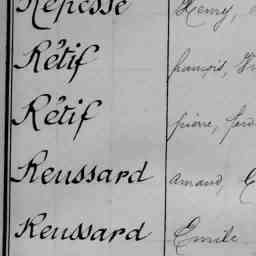 Repesse Henry,
Rétif françois,
Rétif pierre, ferd
Reussard Amand,
Reussard Emile